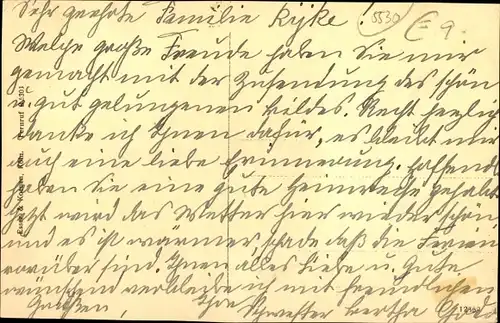 Sehr geehrte Familie Rijke! 5530 E 9.
Welche große Freude haben Sie mir
gemacht mit der Zusendung des schön
u. gut gelungenen Bildes. Recht herzlich
danke ich Ihnen dafür, es bleibt mir
auch eine liebe Erinnerung. Hoffentl.
haben Sie eine gute Heimreise gehabt.
Jetzt wird das Wetter hier wieder schön
und es ist wärmer, schade daß die Ferien
vorüber sind. Ihnen alles Liebe u. Gute
wünschend verbleibe ich mit freundlichen
Grüßen, Ihre
Schwester Bertha